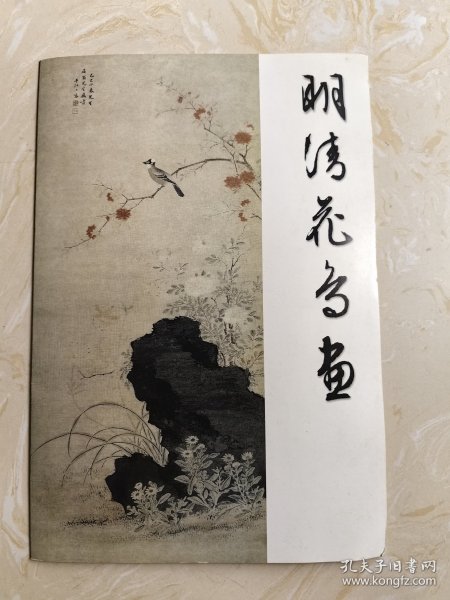 明清花鸟画
孔夫子旧书网
www.kongfz.com